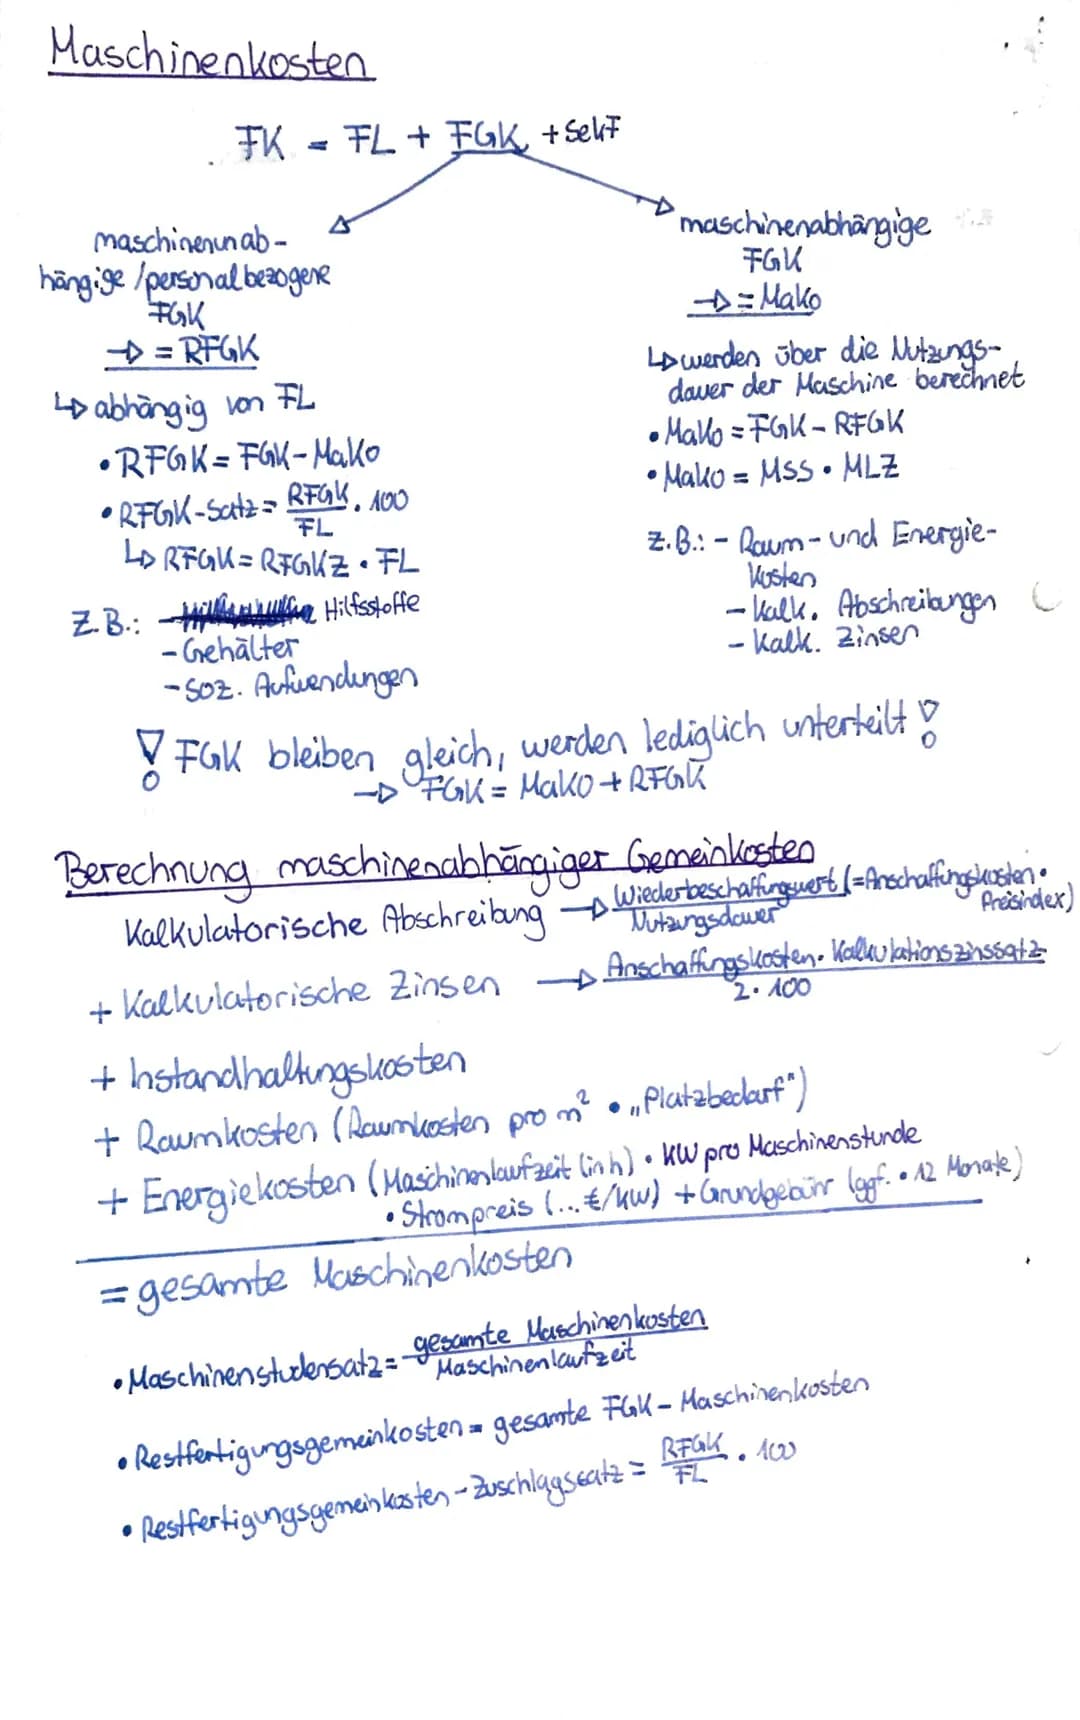 Maschinenkosten
FK = FL + FGK + SekF
maschinenunab-
hängige / personalbezogene
FGK
→ = RFGK
↳ abhängig von FL
• RFGK = FGK - MaKo
• RFGK-Satz = RFGK / FL • 100
↳ RFGK = RFGKZ • FL
Z.B.: - Hilfsstoffe
- Gehälter
- soz. Aufwendungen
maschinenabhängige
FGK
→ = Mako
↳ werden über die Nutzungs-
dauer der Maschine berechnet
• MaKo = FGK - RFGK
• Mako = MSS • MLZ
Z.B.: - Raum- und Energie-
kosten
- kalk. Abschreibungen
- kalk. Zinsen
! FGK bleiben gleich, werden lediglich unterteilt !
→ FGK = MaKo + RFGK
Berechnung maschinenabhängiger Gemeinkosten
Kalkulatorische Abschreibung → Wiederbeschaffungswert (=Anschaffungskosten • Preisindex) / Nutzungsdauer
+ Kalkulatorische Zinsen → Anschaffungskosten • Kalkulationszinssatz / 2 • 100
+ Instandhaltungskosten
+ Raumkosten (Raumkosten pro m² • „Platzbedarf")
+ Energiekosten (Maschinenlaufzeit (in h) • KW pro Maschinenstunde
• Strompreis (...€/KW) + Grundgebühr (ggf. • 12 Monate)
= gesamte Maschinenkosten
• Maschinenstudensatz = gesamte Maschinenkosten / Maschinenlaufzeit
• Restfertigungsgemeinkosten = gesamte FGK - Maschinenkosten
• Restfertigungsgemeinkosten-Zuschlagssatz = RFGK / FL • 100